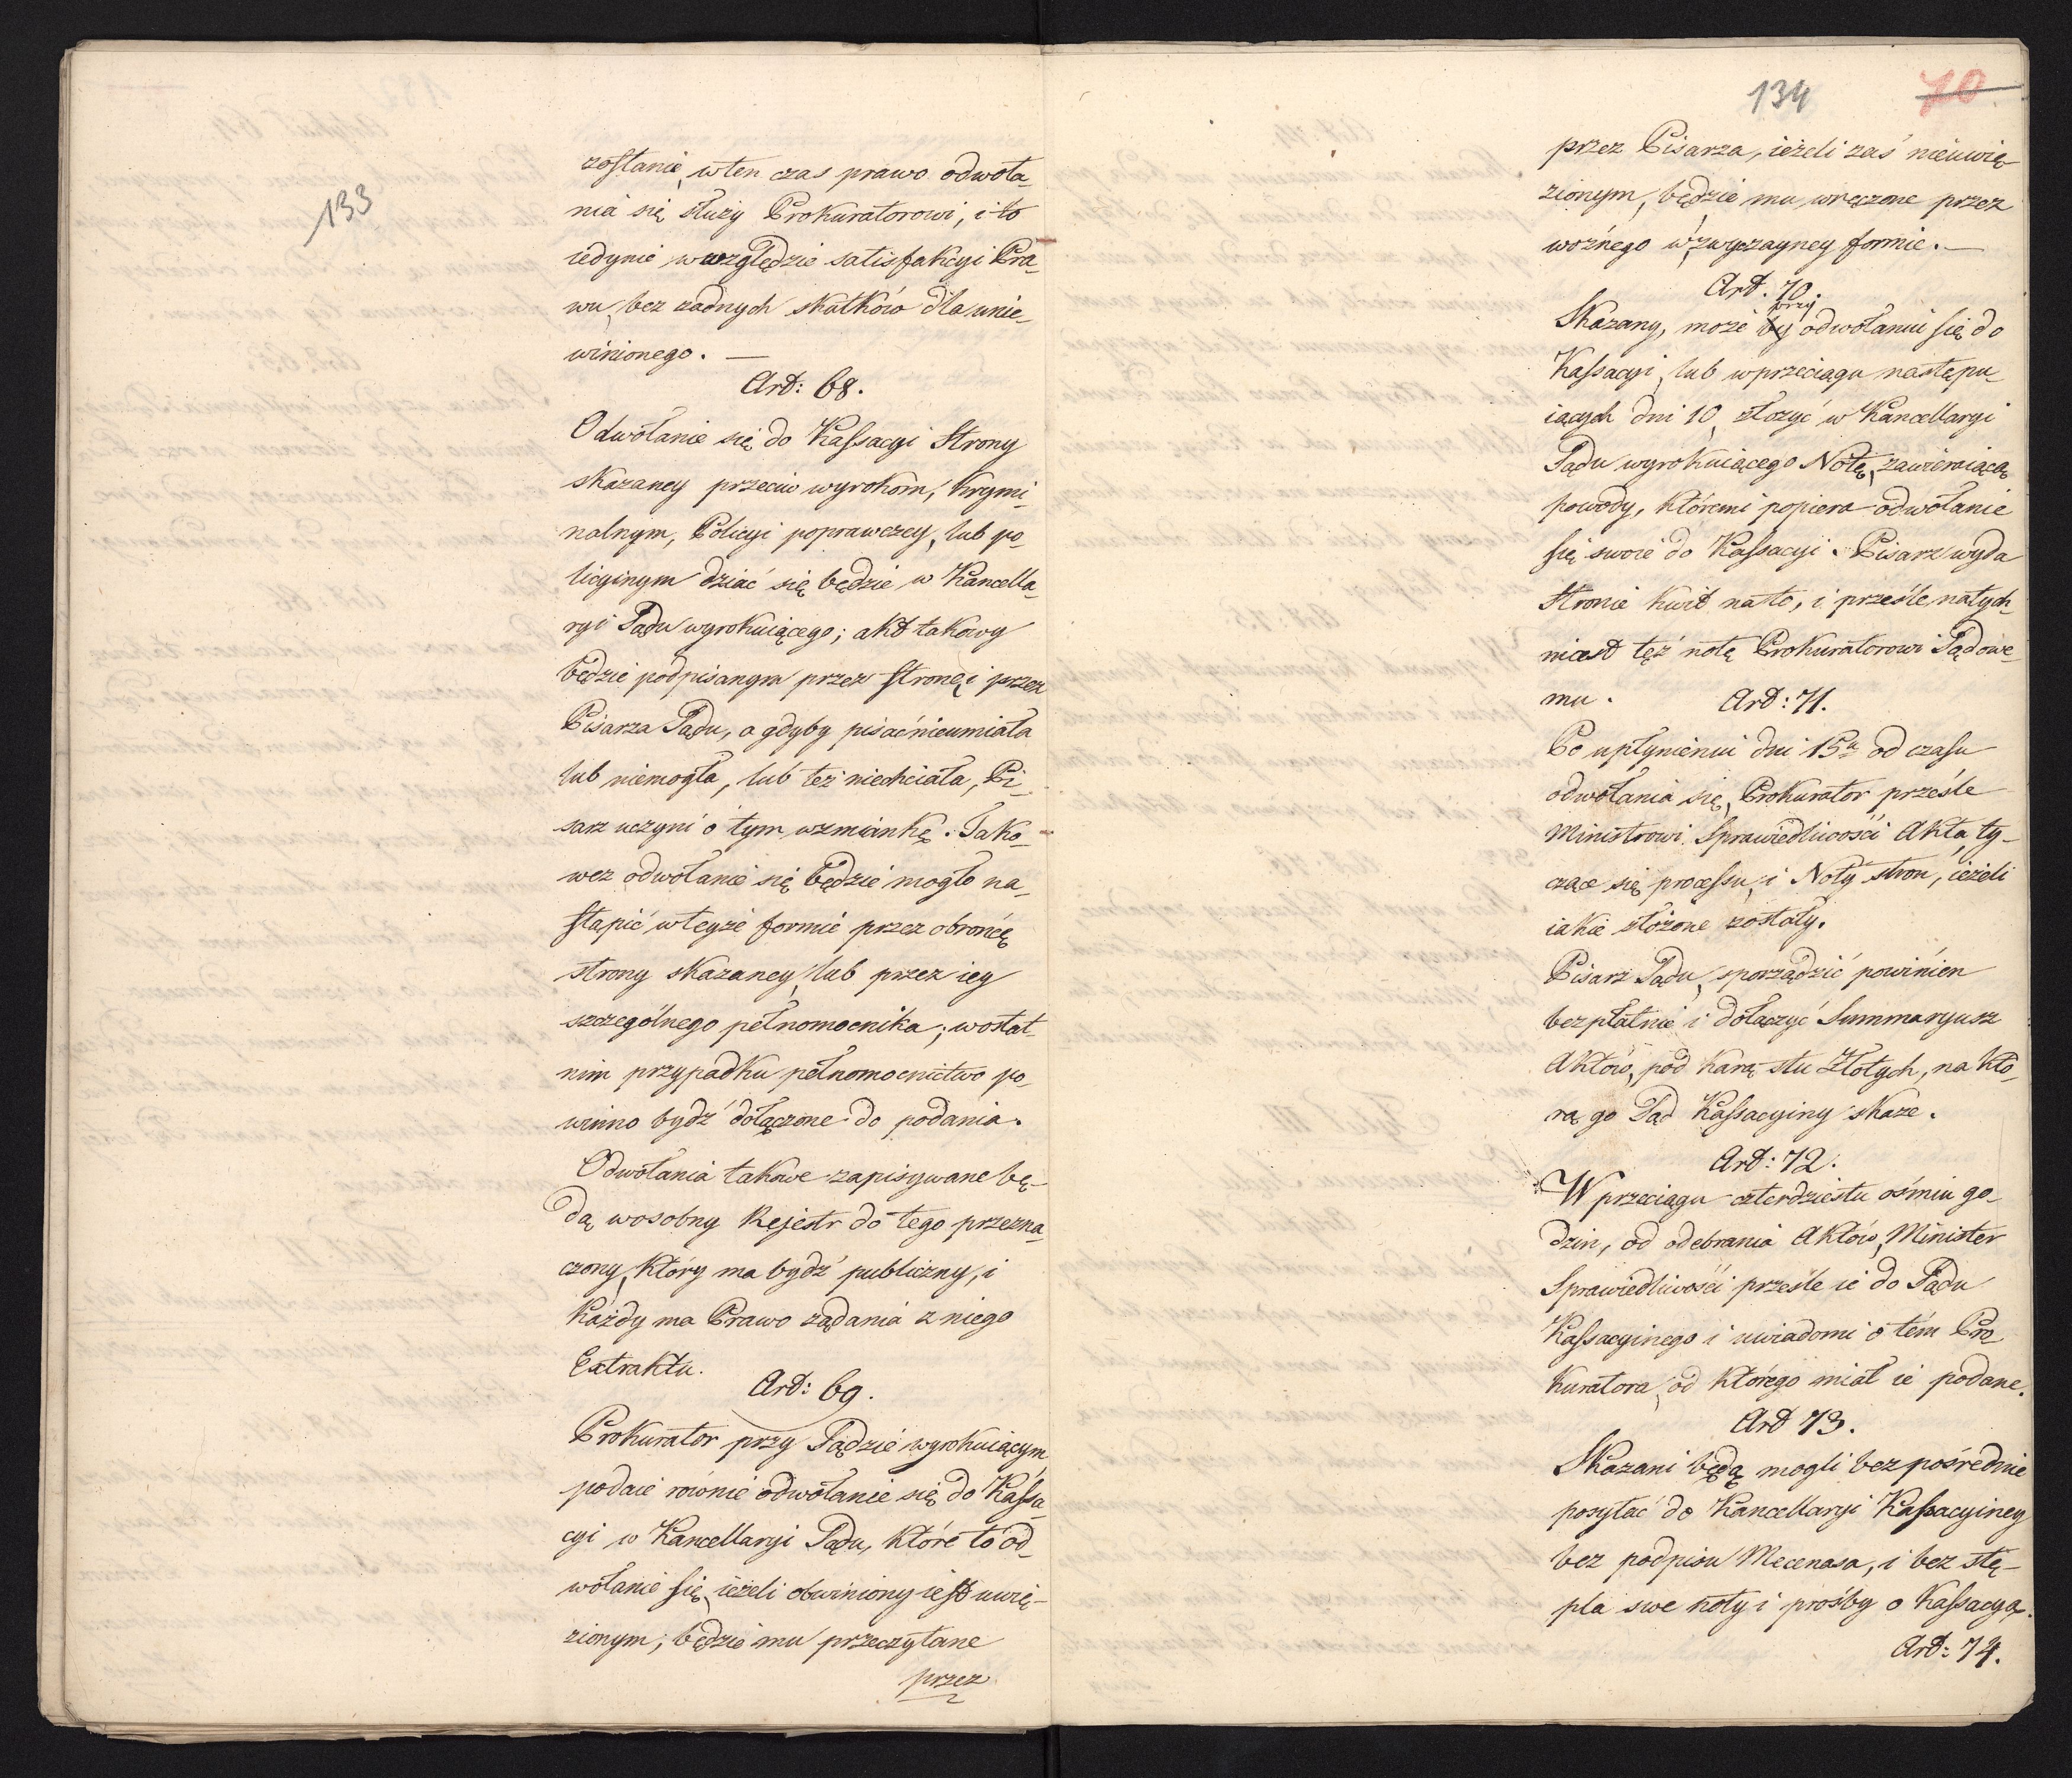 133
zostanie, wten czas prawo odwoła-
nia się służy Prokuratorowi, i to
iedynie wwzględzie satisfakcyi Pra-
wu, bez żadnych skutków dla unie-
winionego. —
Art: 68.
Odwołanie się do Kassacyi Strony
skazaney przeciw wyrokom, krymi-
nalnym, Policyi poprawczey, lub po-
licyinym dziać się będzie w Kancella-
ryi Sądu wyrokuiącego; akt takowy
będzie podpisanym przez stronę i przez
Pisarza Sądu, a gdyby pisać nieumiała
lub niemogła, lub też niechciała, Pi-
sarz uczyni o tym wzmiankę. Tako-
wez odwołanie się będzie mogło na-
stąpić wteyże formie przez obrońcę
strony skazaney, lub przez iey
szczególnego pełnomocnika; wostat-
nim przypadku pełnomocnictwo po-
winno bydź dołączone do podania.
Odwołania takowe zapisywane bę-
dą wosobny Rejestr do tego przezna-
czony, który ma bydź publiczny, i
każdy ma Prawo żądania z niego
Extraktu.
Art: 69.
Prokurator przy Sądzie wyrokuiącym
podaie równie odwołanie się do Kassa-
cyi w Kancellaryi Sądu, które to od-
wołanie się, ieżeli obwiniony iest uwię-
zionym; będzie mu przeczytane
przez
134 70
przez Pisarza, ieżeli zaś nieuwię-
zionym, będzie mu wręczone przez
woźnego w zwyczayney formie. —
Art. 70.
Skazany, może przy odwołaniu się do
Kassacyi, lub wprzeciągu następu-
iących dni 10, złożyć w Kancellaryi
Sądu wyrokuiącego Notę, zawieraiącą
powody, któremi popiera odwołanie
się swoie do Kassacyi. Pisarz wyda
Stronie kwit na to, i prześle natych-
miast też notę Prokuratorowi Sądowe-
mu. Art: 71.
Po upłynieniu dni 15tu od czasu
odwołania się, Prokurator prześle
Ministrowi Sprawiedliwości Akta, ty-
czące się processu, i Noty stron, ieżeli
iakie złożone zostały.
Pisarz Sądu, sporządzić powinien
bezpłatnie i dołączyć Summaryusz
Aktów, pod karą stu Złotych, na któ-
rą go Sąd Kassacyiny skaże.
Art: 72.
W przeciągu czterdziestu ośmiu go-
dzin, od odebrania Aktów, Minister
Sprawiedliwości prześle ie do Sądu
Kassacyinego i uwiadomi o tém Pro-
kuratora, od którego miał ie podane.
Art 73.
Skazani będą mogli bezpośrednie
posyłać do Kancellaryi Kassacyiney
bez podpisu Mecenasa, i bez stę-
pla swe noty i prośby o Kassacyą.
Art: 74.